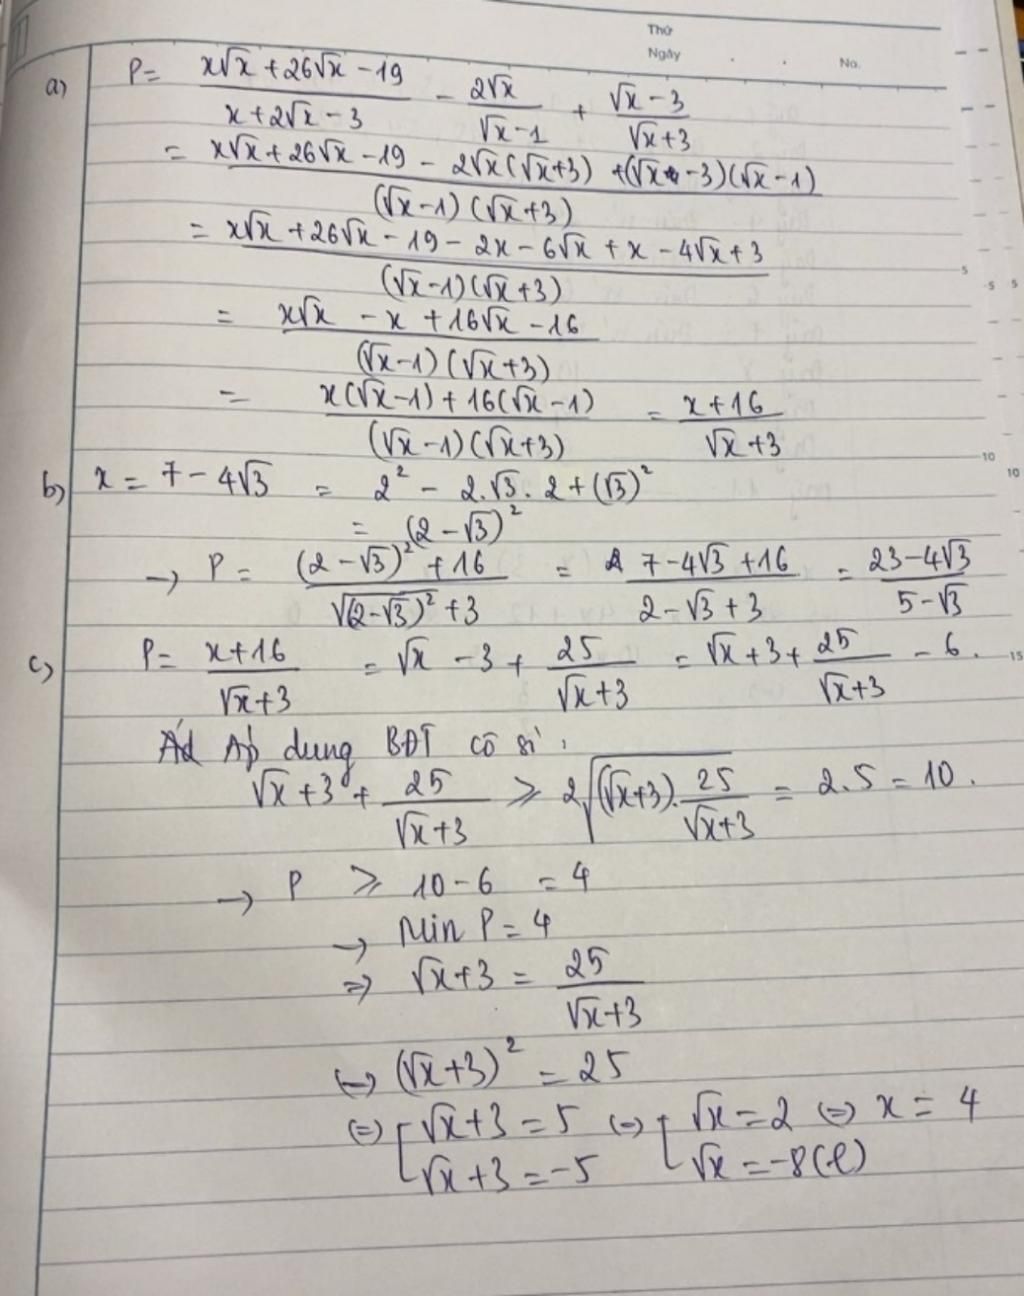 Thứ
Ngày . . No.
a) P = (x√x + 26√x - 19)/(x + 2√x - 3) - 2√x/(√x - 1) + (√x - 3)/(√x + 3)
= (x√x + 26√x - 19 - 2√x(√x+3) + (√x - 3)(√x - 1))/((√x - 1)(√x + 3))
= (x√x + 26√x - 19 - 2x - 6√x + x - 4√x + 3)/((√x - 1)(√x + 3))
= (x√x - x + 16√x - 16)/((√x - 1)(√x + 3))
= (x(√x - 1) + 16(√x - 1))/((√x - 1)(√x + 3)) = (x + 16)/(√x + 3)
b) x = 7 - 4√3 = 2² - 2.√3.2 + (√3)²
= (2 - √3)²
→ P = ((2 - √3)² + 16)/(√(2 - √3)² + 3) = (7 - 4√3 + 16)/(2 - √3 + 3) = (23 - 4√3)/(5 - √3)
c) P = (x + 16)/(√x + 3) = √x - 3 + 25/(√x + 3) = √x + 3 + 25/(√x + 3) - 6.
Áp dung BĐT cô si:
√x + 3 + 25/(√x + 3) ⩾ 2√((√x + 3).25/(√x + 3)) = 2.5 = 10.
→ P ⩾ 10 - 6 = 4
→ Min P = 4
⇒ √x + 3 = 25/(√x + 3)
⇔ (√x + 3)² = 25
⇔ [√x + 3 = 5 ⇔ [√x = 2 ⇔ x = 4
√x + 3 = -5 √x = -8 (l)
5
10
15
5
10